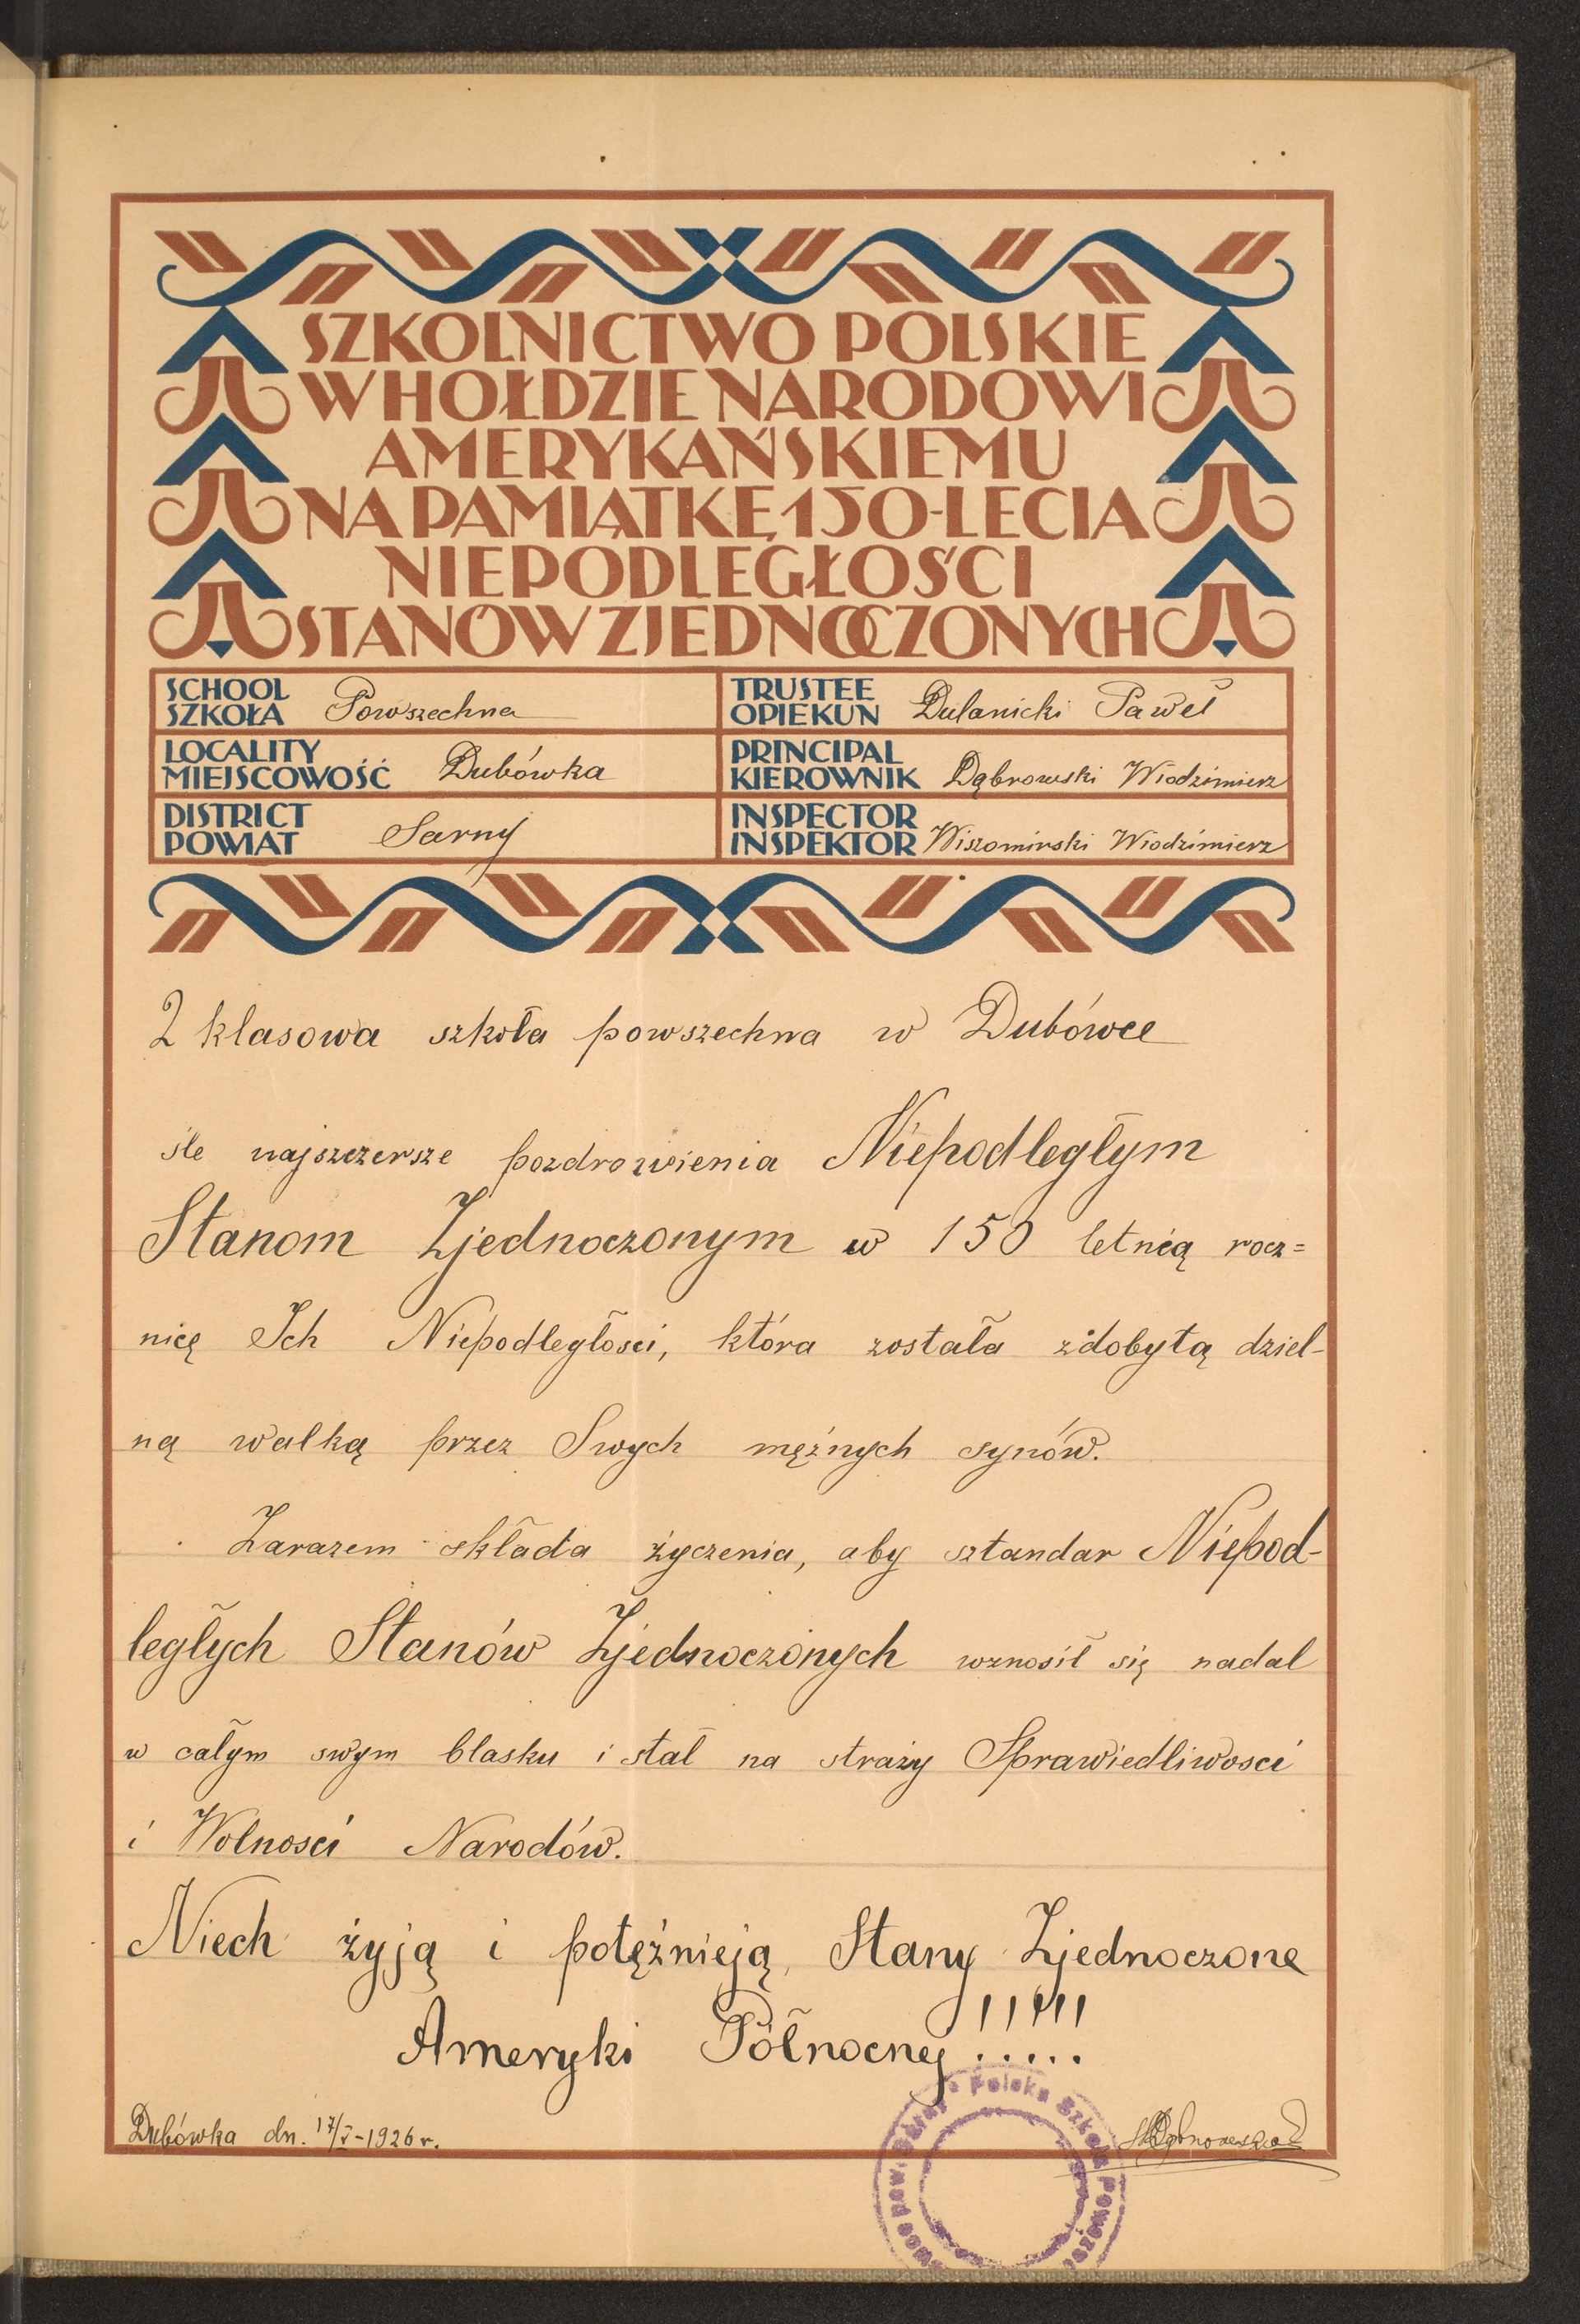 SZKOLNICTWO POLSKIE
W HOŁDZIE NARODOWI
AMERYKAŃSKIEMU
NA PAMIĄTKĘ 150-LECIA
NIEPODLEGŁOŚCI
STANÓW ZJEDNOCZONYCH
SCHOOL
SZKOŁA Powszechna
TRUSTEE
OPIEKUN Dulanicki Paweł
LOCALITY
MIEJSCOWOŚĆ Dubówka
PRINCIPAL
KIEROWNIK Dąbrowski Włodzimierz
DISTRICT
POWIAT Sarny
INSPECTOR
INSPEKTOR Wiszomirski Włodzimierz
2 klasowa szkoła powszechna w Dubówce
śle najszczersze pozdrowienia Niepodległym
Stanom Zjednoczonym w 150 letnią rocz=
nicę Ich Niepodległosci, która została zdobytą dziel-
ną walką przez Swych mężnych synów.
Zarazem składa życzenia, aby sztandar Niepod-
ległych Stanów Zjednoczonych wznosił się nadal
w całym swym blasku i stał na straży Sprawiedliwosci
i Wolnosci Narodów.
Niech żyją i potężnieją Stany Zjednoczone
Ameryki Północnej!!!!!
Dubówka dn. 17/V-1926 r.
Polska Szkoła Powszec